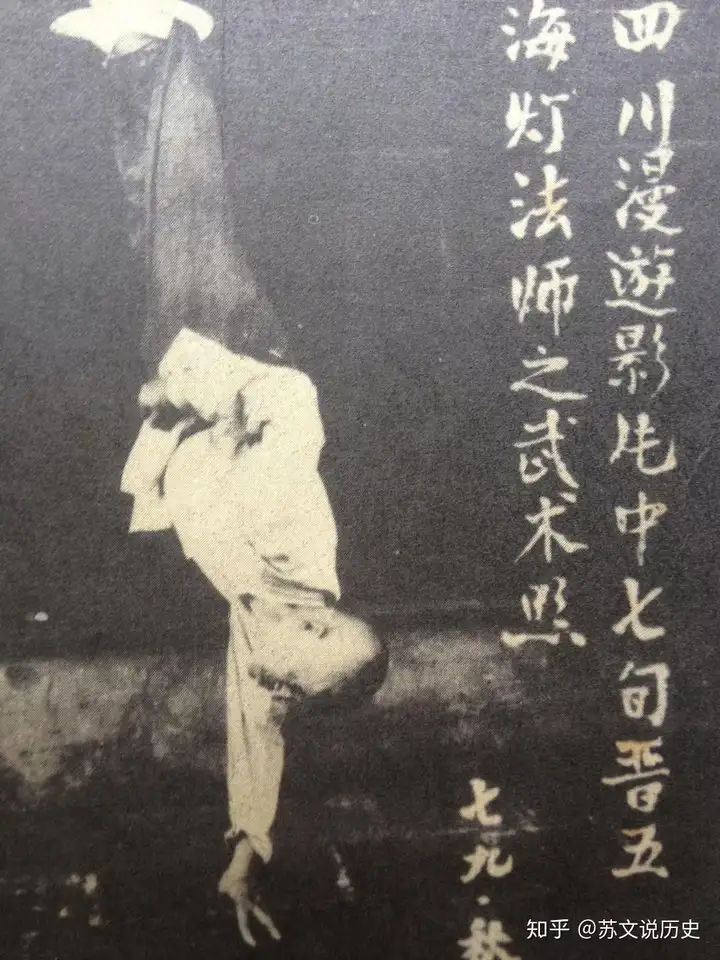 四川漫遊影片中七旬晋五
海灯法师之武术照
七九·秋
知乎 @苏文说历史